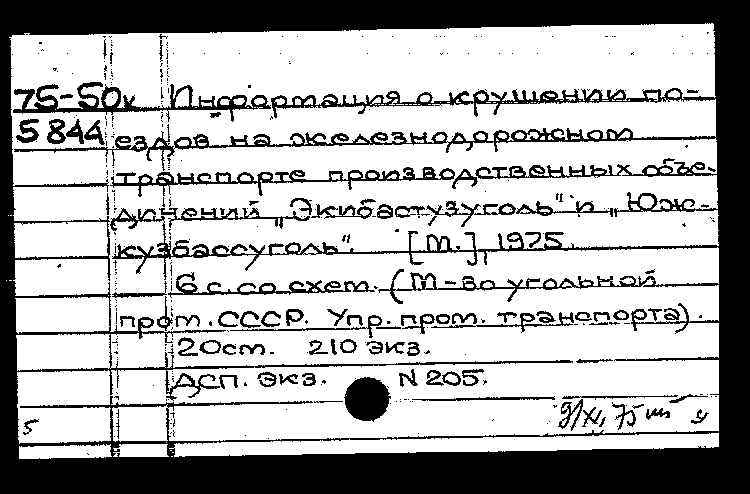 75-50к Информация о крушении по-
5844 ездов на железнодорожном
транспорте производственных объе-
динений „Экибастузуголь" и „Юж-
кузбассуголь". [М.], 1975.
6 с. со схем. (М-во угольной
пром. СССР. Упр. пром. транспорта).
20см. 210 экз.
ДСП. Экз. N 205.
5